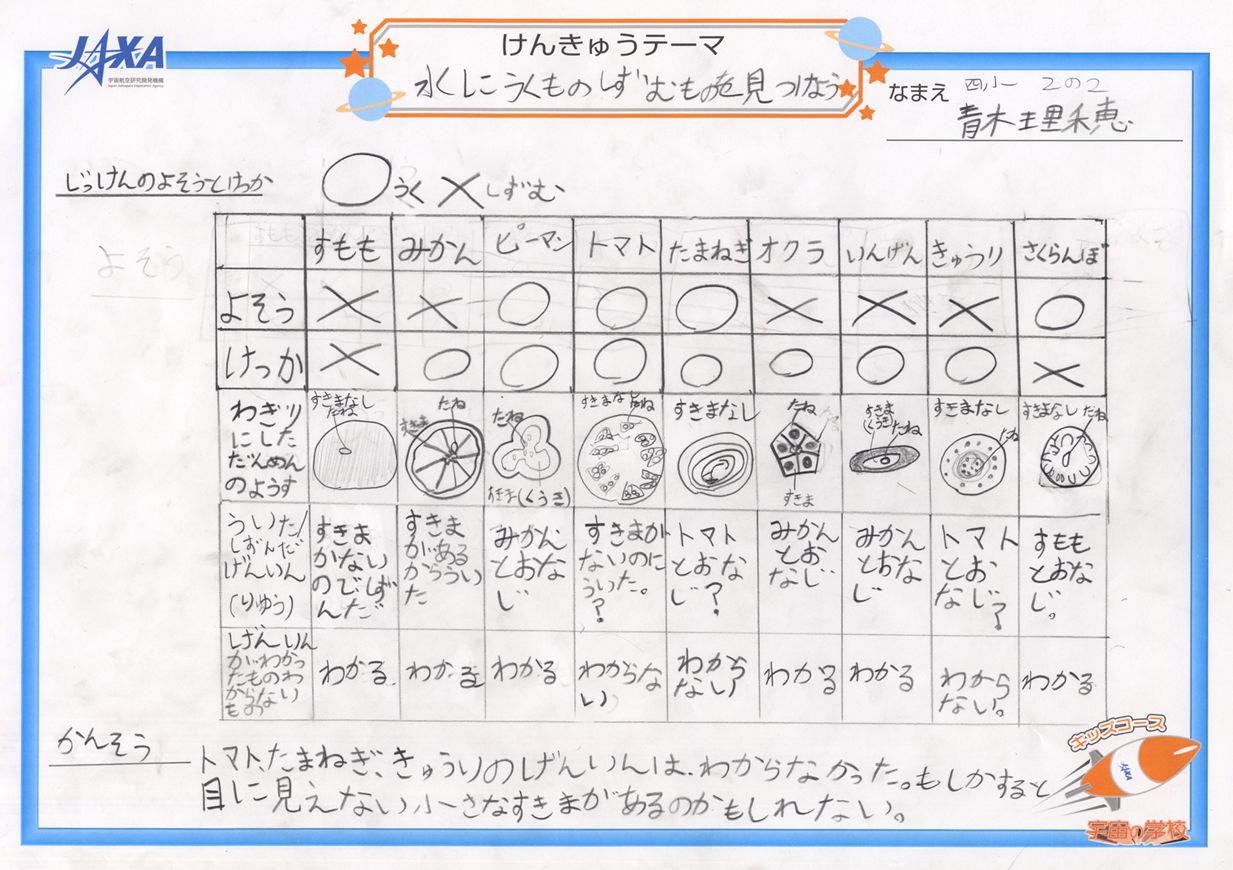 JAXA
宇宙航空研究開発機構
Japan Aerospace Exploration Agency
けんきゅうテーマ
水にうくものしずむものを見つけよう
なまえ
四小 2の2
じっけんのよそうとけっか
○うく ×しずむ
すもも みかん ピーマン トマト たまねぎ オクラ いんげん きゅうり さくらんぼ
よそう × × ○ ○ ○ × × × ○
けっか × ○ ○ ○ ○ ○ ○ ○ ×
わぎり
にした
だんめん
のようす
すきまなし
たね
すきま
たね
たね
すきま(くうき)
すきまなし
たね
すきまなし
たね
すきま
すきま
(くうき)
たね
すきまなし
たね
すきまなし
たね
ういた/
しずんだ
げんいん
(りゆう)
すきま
がない
のでしず
んだ
すきま
がある
からうい
た
みかん
とおな
じ
すきまが
ないのに
ういた。
?
トマト
とおな
じ?
みかん
とおな
なじ
みかん
とおな
じ
トマト
とお
なじ?
すもも
とおな
じ。
げんいん
がわかっ
たものわ
からない
もの
わかる。
わかる
わかる
わからな
い
わから
ない
わかる
わかる
わから
ない。
わかる
かんそう
トマト、たまねぎ、きゅうりのげんいんは、わからなかった。もしかすると
目に見えない小さなすきまがあるのかもしれない。
よそう
キッズコース
JAXA
宇宙の学校